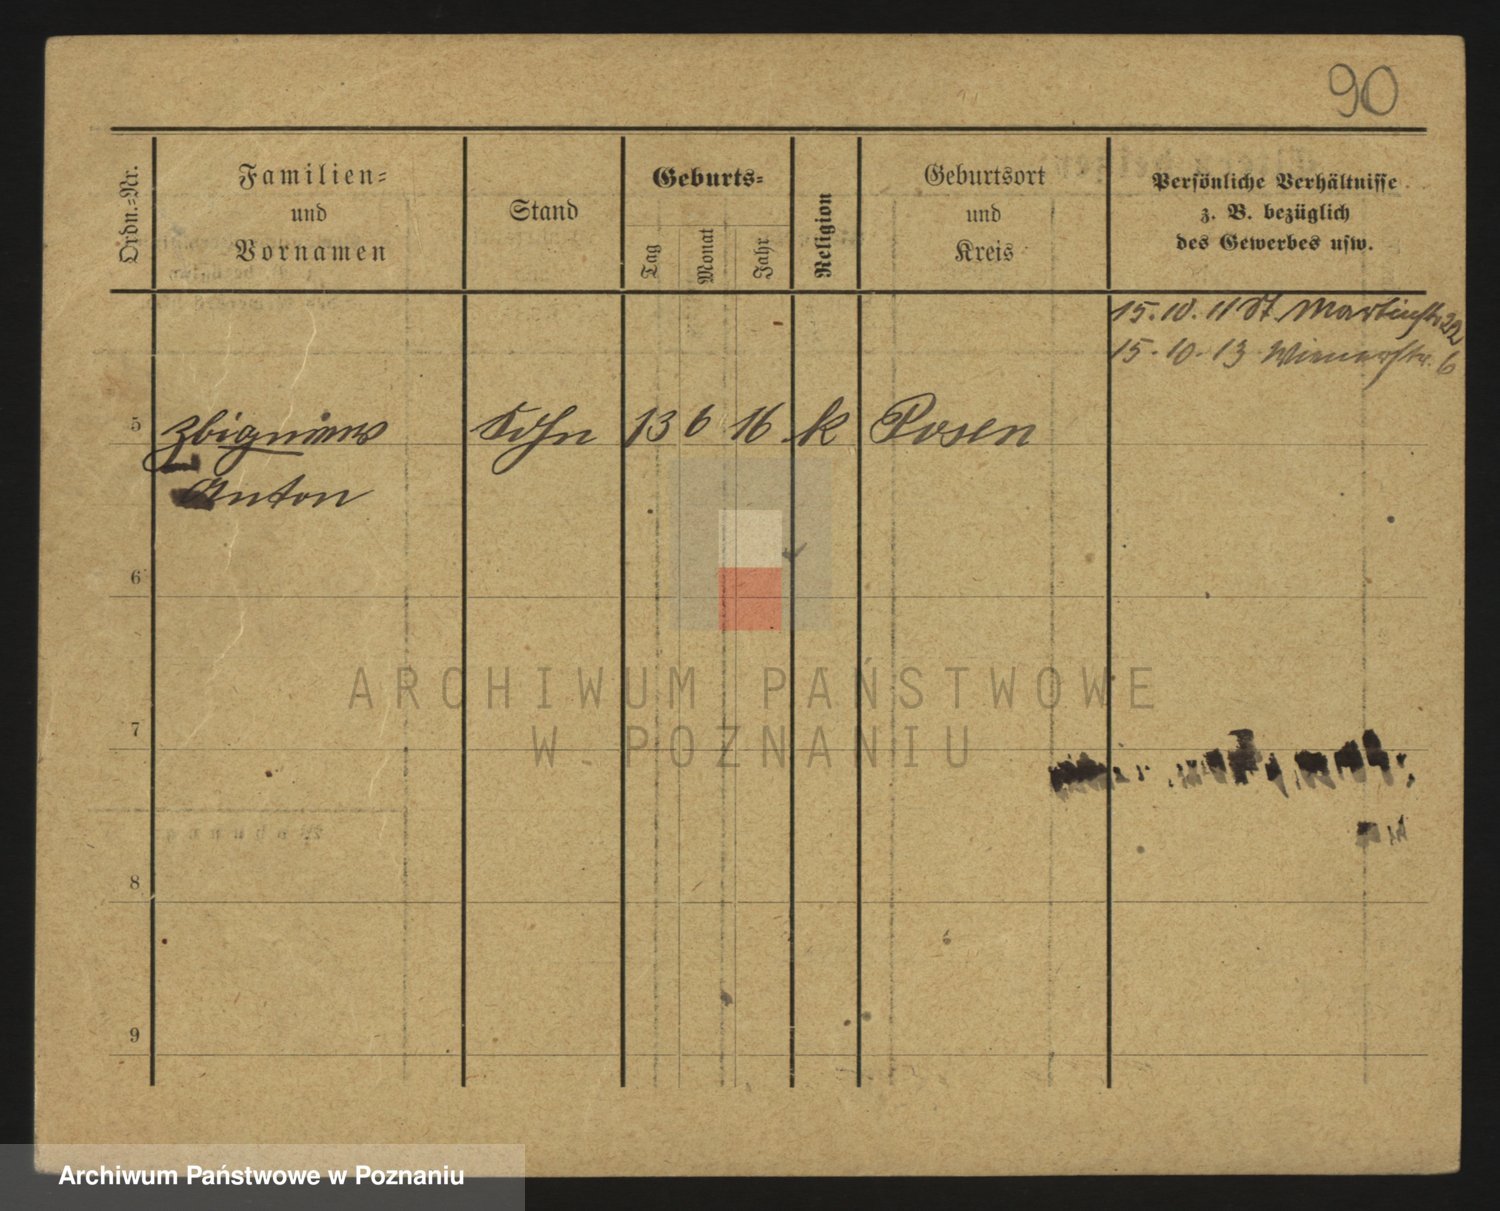 90
Ordn.-Nr.
Familien-
und
Vornamen
Stand
Geburts-
Tag
Monat
Jahr
Religion
Geburtsort
und
Kreis
Persönliche Verhältnisse
z. B. bezüglich
des Gewerbes usw.
15.10.11 St. Martinstr 22
15.10.13 Wienerstr. 6
5 Zbigniew Sohn 13 6 16 k Posen
Anton
6
7
8
9
ARCHIWUM PAŃSTWOWE
W POZNANIU
Archiwum Państwowe w Poznaniu